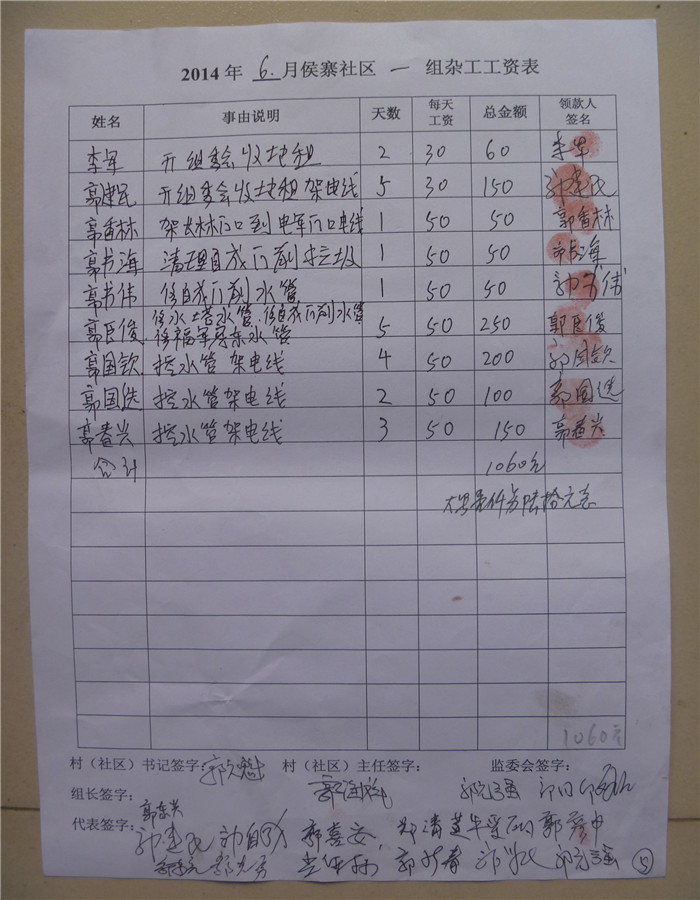 2014 年 6. 月侯寨社区 一 组杂工工资表
姓名 事由说明 天数 每天工资 总金额 领款人签名
李军 开组委会收地租 2 30 60 李军
郭建民 开组委会收地租架电线 5 30 150 郭建民
郭香林 架长林门口到电军门口电线 1 50 50 郭香林
郭书海 清理自成门前垃圾 1 50 50 郭书海
郭书伟 修自成门前水管 1 50 50 郭书伟
郭臣俊 修水塔水管.修自成门前水管 修福军房东水管 5 50 250 郭臣俊
郭国钦 挖水管架电线 4 50 200 郭国钦
郭国选 挖水管架电线 2 50 100 郭国选
郭春兴 挖水管架电线 3 50 150 郭春兴
合计 1060元
大写壹仟另陆拾元正
1060元
村（社区）书记签字： 村（社区）主任签字： 监委会签字：
组长签字：郭东兴
代表签字：郭建民 郭喜安
⑤